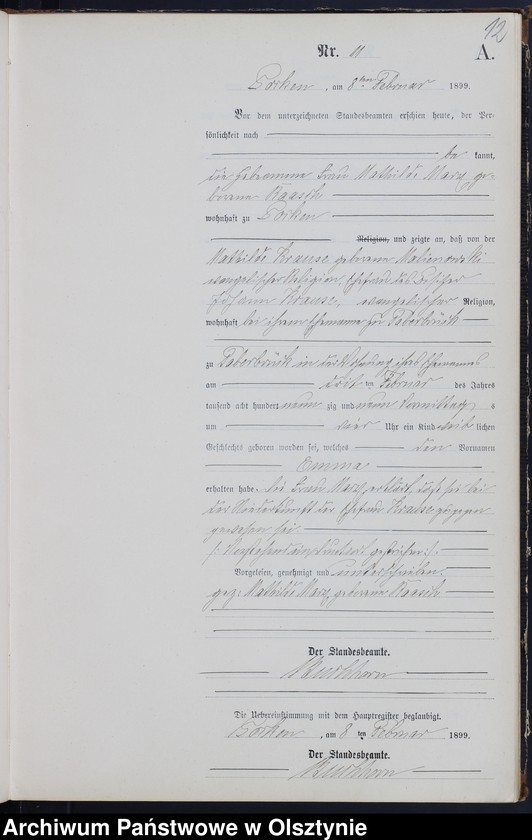 12
Nr. 11 A.
Borken, am 8ten Februar 1899.
Vor dem unterzeichneten Standesbeamten erschien heute, der Per-
sönlichkeit nach
be kannt,
die Hebamme Frau Mathilde Marx ge-
borene Kaasch
wohnhaft zu Borken
Religion, und zeigte an, daß von der
Mathilde Krause geborene Malinowski
evangelischer Religion, Ehefrau des
Johann Krause, evangelischer Religion,
wohnhaft bei ihrem Ehemanne zu Taberbrück
zu Taberbrück in der Wohnung ihres Ehemannes
am drit ten Februar des Jahres
tausend acht hundert neun zig und neun Vormittags
um vier Uhr ein Kind weib lichen
Geschlechts geboren worden sei, welches den Vornamen
Emma
erhalten habe. Die Frau Marx erklärt, daß sie bei
der Niederkunft der Ehefrau Krause zugegen
gewesen sei
gestrichen
Vorgelesen, genehmigt und unterschrieben.
gez: Mathilde Marx, geborene Kaasch
Der Standesbeamte.
Die Uebereinstimmung mit dem Hauptregister beglaubigt.
Borken, am 8 ten Februar 1899.
Der Standesbeamte.
Archiwum Państwowe w Olsztynie